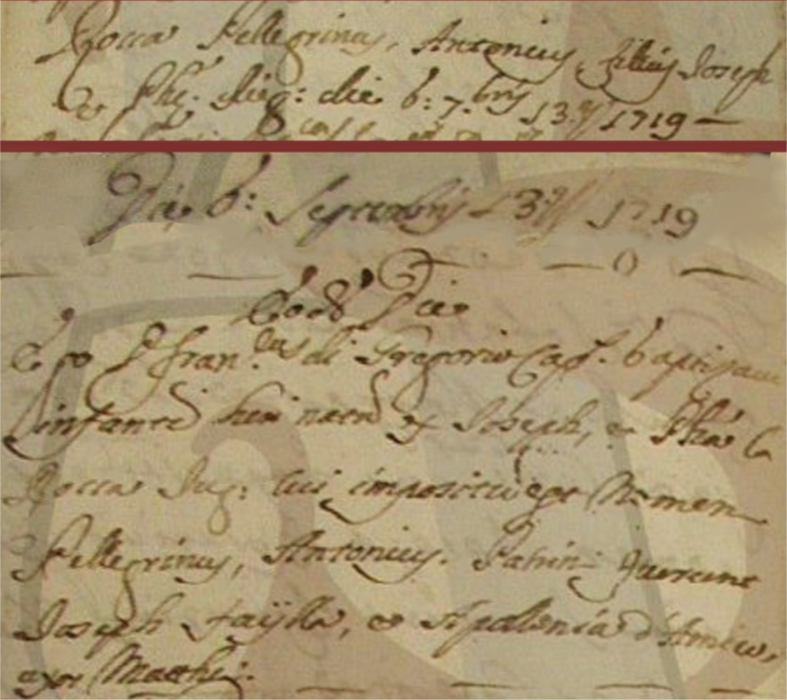 Rocca Pellegrinus, Antonius, filius Joseph
et Phę Jug: die 6: 7.bris 13.ę Ind 1719 —
Die 6: Septembris 13.ę Ind 1719
Eodē Die
Ego D. Fran.cus di Gregorio Cap. baptizavi
infantē heri natū ex Joseph, et
Rocca Jug: cui impositū est Nomen
Pellegrinus, Antonius. Patrini fuerunt
Joseph Faylla, et Apolonia d'Amico,
uxor Matthei.